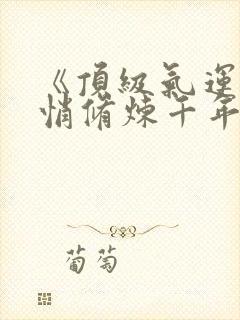 《頂級氣運
悄脩煉千年
葡萄